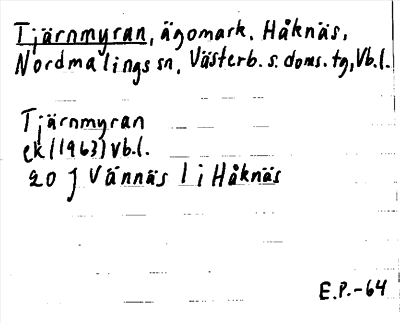 Tjärnmyran, ägomark, Håknäs,
Nordmalings sn, Västerb. s. doms. tg, Vb. l.
Tjärnmyran
ek (1963) Vb. l.
20 J Vännäs l i Håknäs
E.P.-64